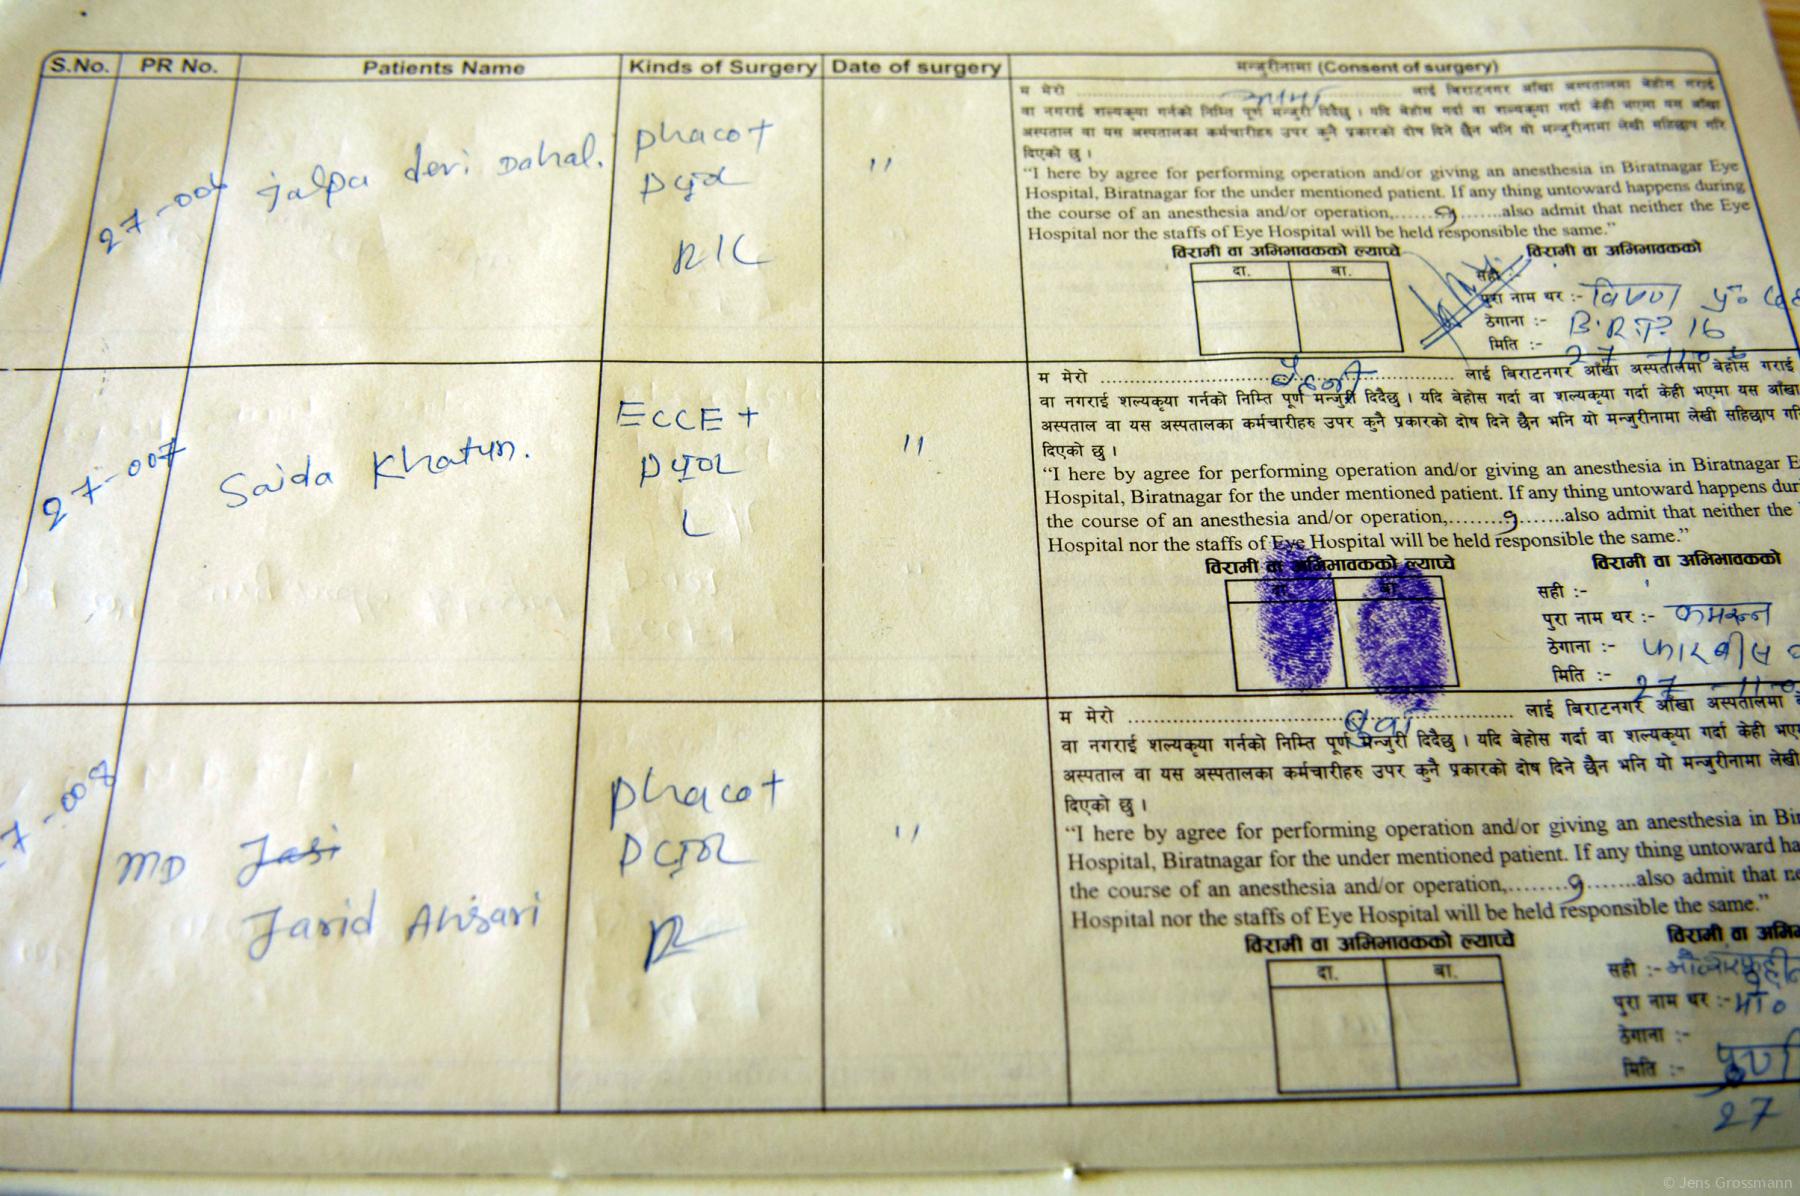 S.No. PR No. Patients Name Kinds of Surgery Date of surgery मन्जुरीनामा (Consent of surgery)
27-006 Jalpa devi Dahal. phaco+ "
PCIOL
R/L
म मेरो आमा लाई बिराटनगर आँखा अस्पतालमा बेहोस गराई
वा नगराई शल्यकृया गर्नको निम्ति पूर्ण मन्जुरी दिदैछु । यदि बेहोस गर्दा वा शल्यकृया गर्दा केही भएमा यस आँखा
अस्पताल वा यस अस्पतालका कर्मचारीहरु उपर कुनै प्रकारको दोष दिने छैन भनि यो मन्जुरीनामा लेखी सहिछाप गरि
दिएको छु ।
“I here by agree for performing operation and/or giving an anesthesia in Biratnagar Eye
Hospital, Biratnagar for the under mentioned patient. If any thing untoward happens during
the course of an anesthesia and/or operation,...... ......also admit that neither the Eye
Hospital nor the staffs of Eye Hospital will be held responsible the same.”
विरामी वा अभिभावकको ल्याप्चे विरामी वा अभिभावकको
दा. बा. सही :-
पुरा नाम थर :-
ठेगाना :- B.R.T. 16
मिति :- 27
27-007 Saida Khatun. ECCE + "
PCIOL
L
म मेरो लाई बिराटनगर आँखा अस्पतालमा बेहोस गराई
वा नगराई शल्यकृया गर्नको निम्ति पूर्ण मन्जुरी दिदैछु । यदि बेहोस गर्दा वा शल्यकृया गर्दा केही भएमा यस आँखा
अस्पताल वा यस अस्पतालका कर्मचारीहरु उपर कुनै प्रकारको दोष दिने छैन भनि यो मन्जुरीनामा लेखी सहिछाप
दिएको छु ।
“I here by agree for performing operation and/or giving an anesthesia in Biratnagar
Hospital, Biratnagar for the under mentioned patient. If any thing untoward happens
the course of an anesthesia and/or operation,....... .......also admit that neither the
Hospital nor the staffs of Eye Hospital will be held responsible the same.”
विरामी वा अभिभावकको ल्याप्चे विरामी वा अभिभावकको
दा. बा. सही :-
पुरा नाम थर :-
ठेगाना :-
मिति :- 27
-008 MD Jarid Ansari phaco+ "
PCIOL
R
म मेरो लाई बिराटनगर आँखा अस्पतालमा
वा नगराई शल्यकृया गर्नको निम्ति पूर्ण मन्जुरी दिदैछु । यदि बेहोस गर्दा वा शल्यकृया गर्दा केही
अस्पताल वा यस अस्पतालका कर्मचारीहरु उपर कुनै प्रकारको दोष दिने छैन भनि यो मन्जुरीनामा लेखी
दिएको छु ।
“I here by agree for performing operation and/or giving an anesthesia in
Hospital, Biratnagar for the under mentioned patient. If any thing untoward
the course of an anesthesia and/or operation,....... .......also admit that
Hospital nor the staffs of Eye Hospital will be held responsible the same.”
विरामी वा अभिभावकको ल्याप्चे विरामी वा
दा. बा. सही :-
पुरा नाम थर :- मो०
ठेगाना :-
मिति :-
27
© Jens Grossmann